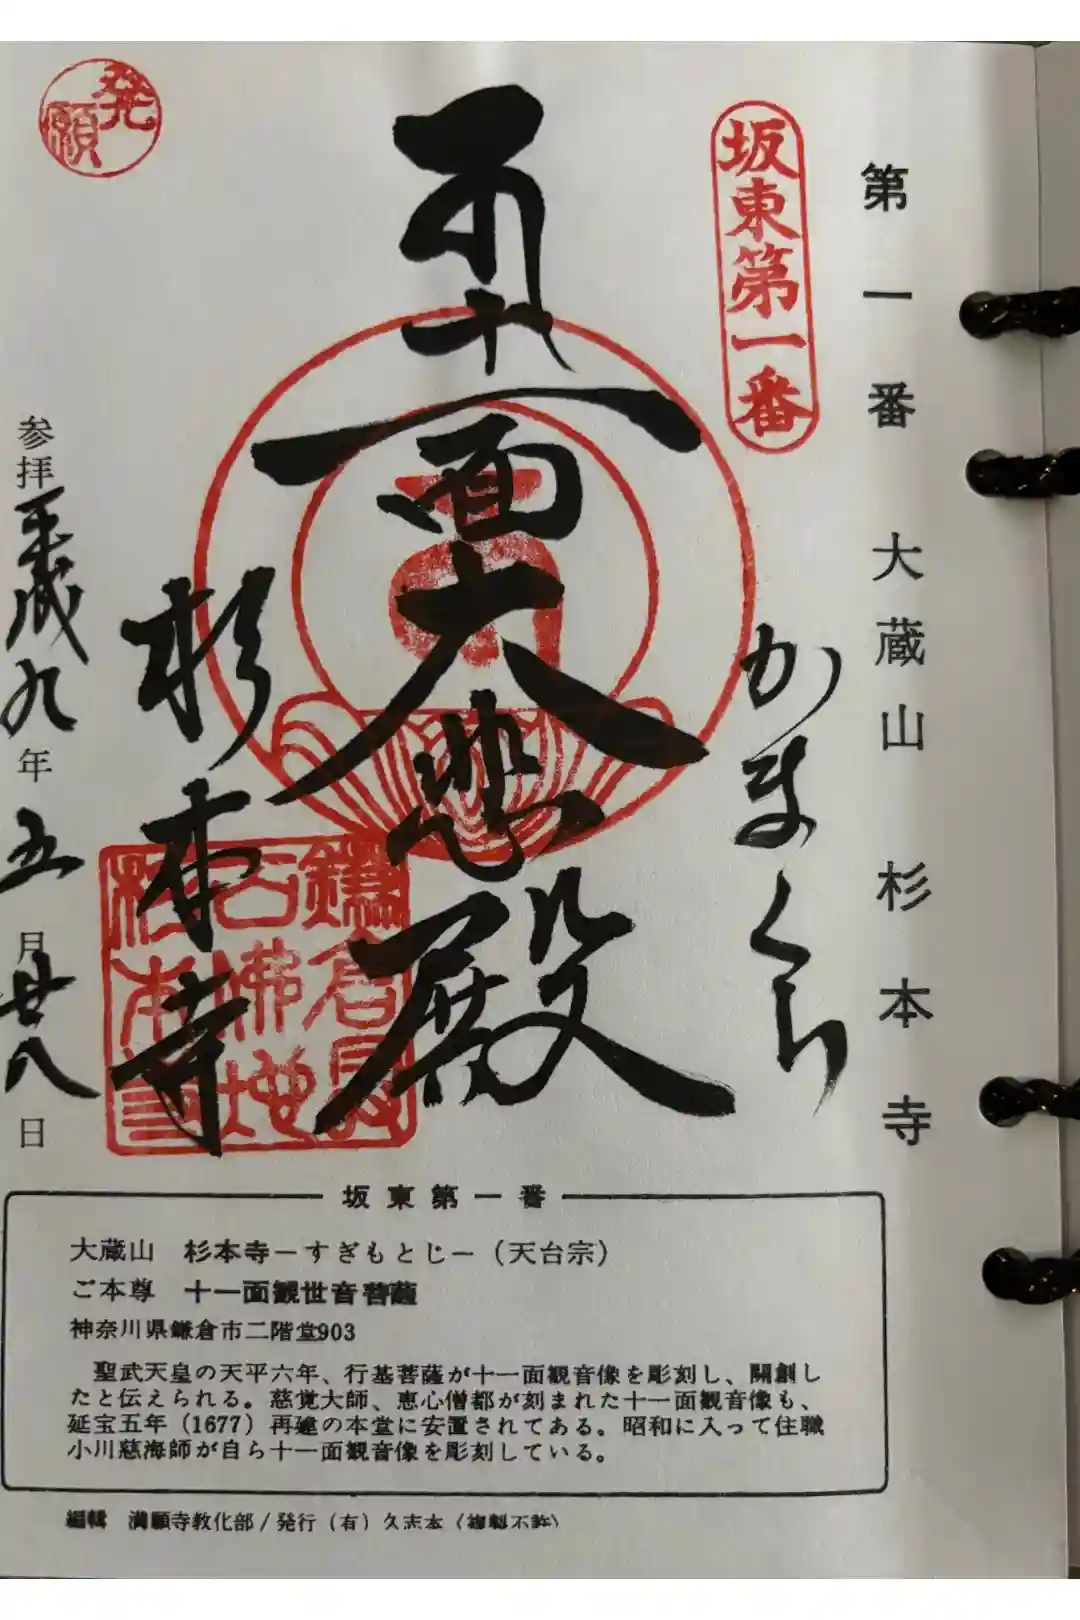 第一番 大蔵山 杉本寺
坂東第一番
発願
かまくら
十一面大悲殿
杉本寺
参拝平成九年五月廿八日
坂東第一番
大蔵山 杉本寺ーすぎもとじー（天台宗）
ご本尊 十一面観世音菩薩
神奈川県鎌倉市二階堂903
聖武天皇の天平六年、行基菩薩が十一面観音像を彫刻し、開創し
たと伝えられる。慈覚大師、恵心僧都が刻まれた十一面観音像も、
延宝五年（1677）再建の本堂に安置されてある。昭和に入って住職
小川慈海師が自ら十一面観音像を彫刻している。
編輯 満願寺教化部/発行（有）久志本（複製不許）